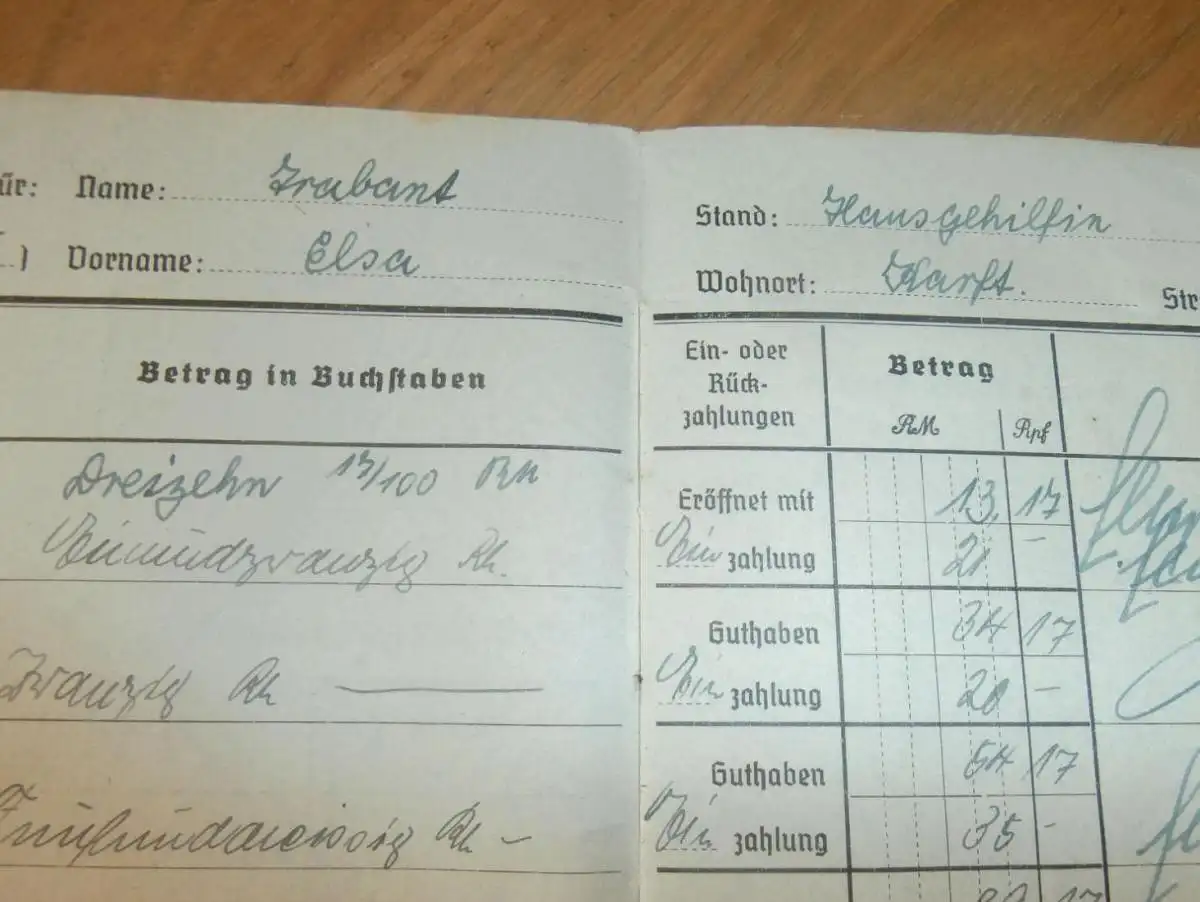 für: Name: Trabant
Vorname: Elsa
Stand: Hausgehilfin
Wohnort: Karft. Str
Betrag in Buchstaben
Ein- oder Rück-zahlungen
Betrag
RM Rpf
Dreizehn 17/100 RM
Eröffnet mit 13,17
Einundzwanzig RM.
Ein zahlung 21 -
Guthaben 34 17
Zwanzig RM —
Ein zahlung 20 -
Guthaben 54 17
Fünfunddreissig RM -
Ein zahlung 35 -
89 17